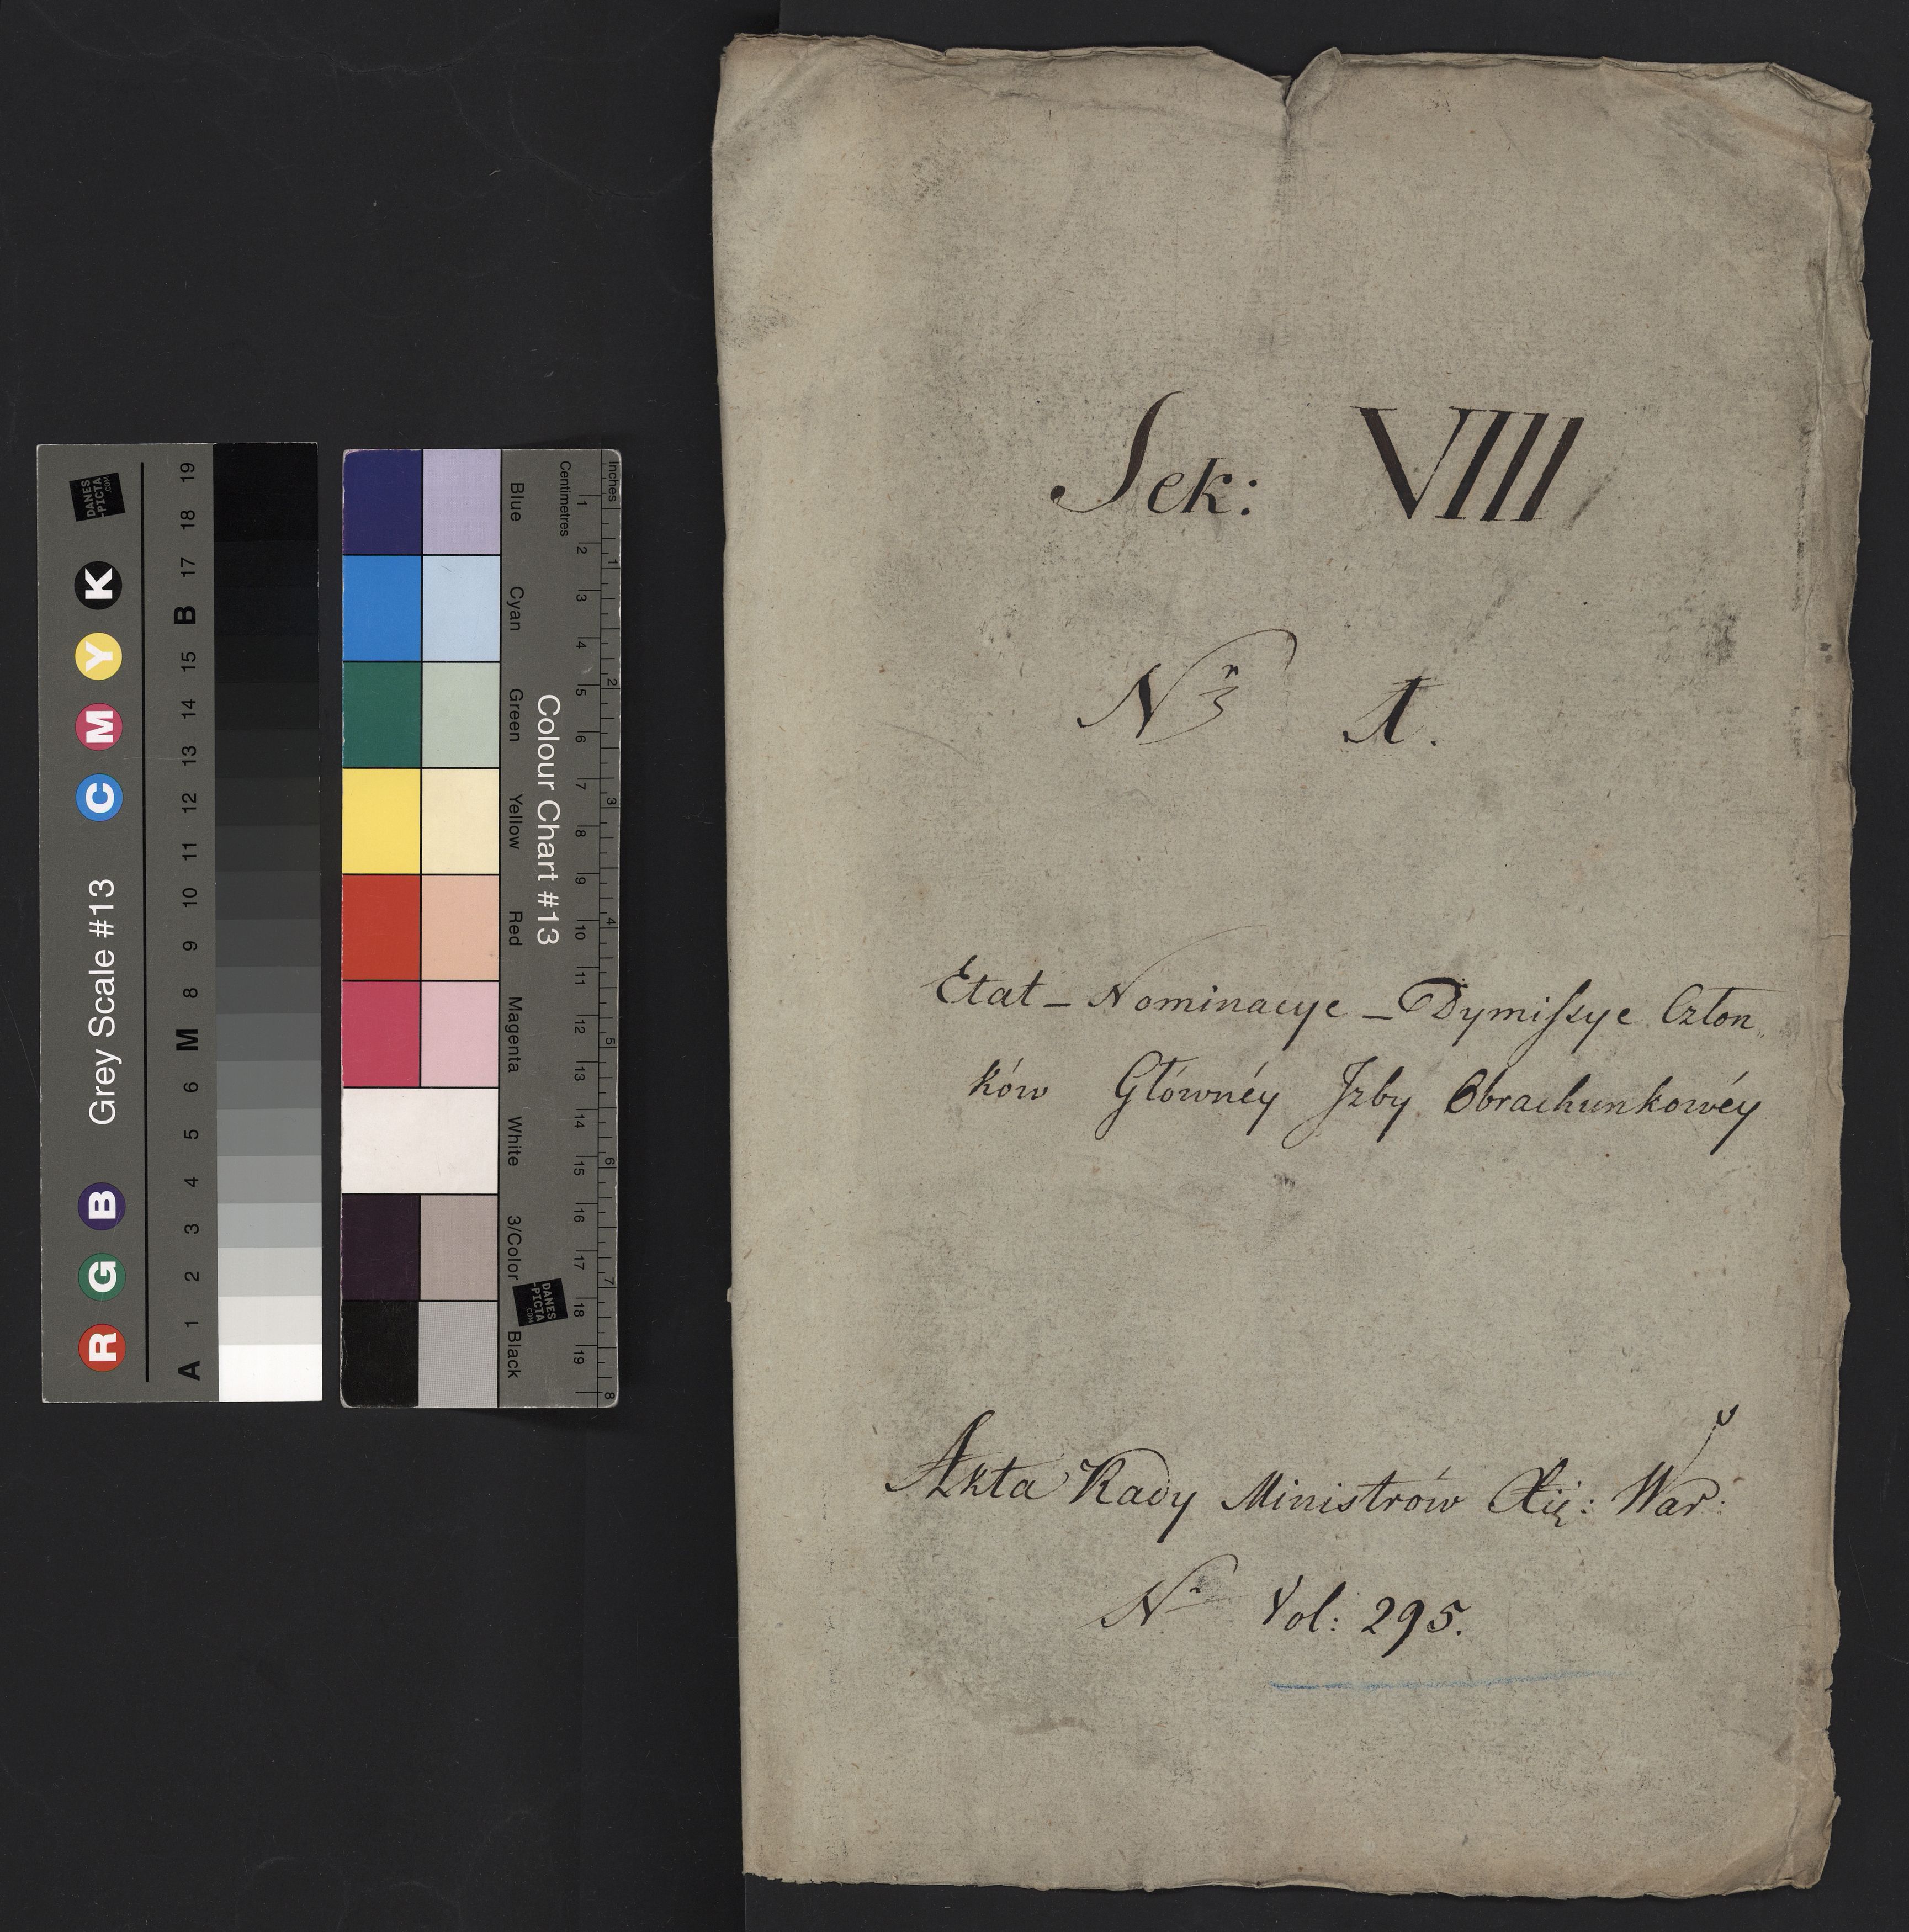 Sek: VIII
Nr 3 A.
Etat – Nominacye – Dymissye Człon„
ków Główney Jzby Obrachunkowéy
Akta Rady Ministrów Xię: War:
Nr Vol: 295.
Grey Scale #13
R G B C M Y K
A 1 2 3 4 5 6 M 8 9 10 11 12 13 14 15 B 17 18 19
DANES
-PICTA
.COM
Colour Chart #13
Blue Cyan Green Yellow Red Magenta White 3/Color Black
Centimetres 1 2 3 4 5 6 7 8 9 10 11 12 13 14 15 16 17 18 19
Inches 1 2 3 4 5 6 7 8
DANES
-PICTA
.COM